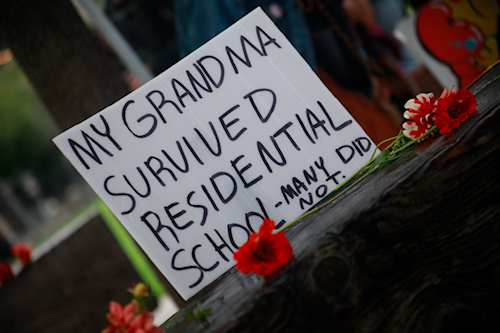 MY GRANDMA
SURVIVED
RESIDENTIAL
SCHOOL-MANY DID
NOT.